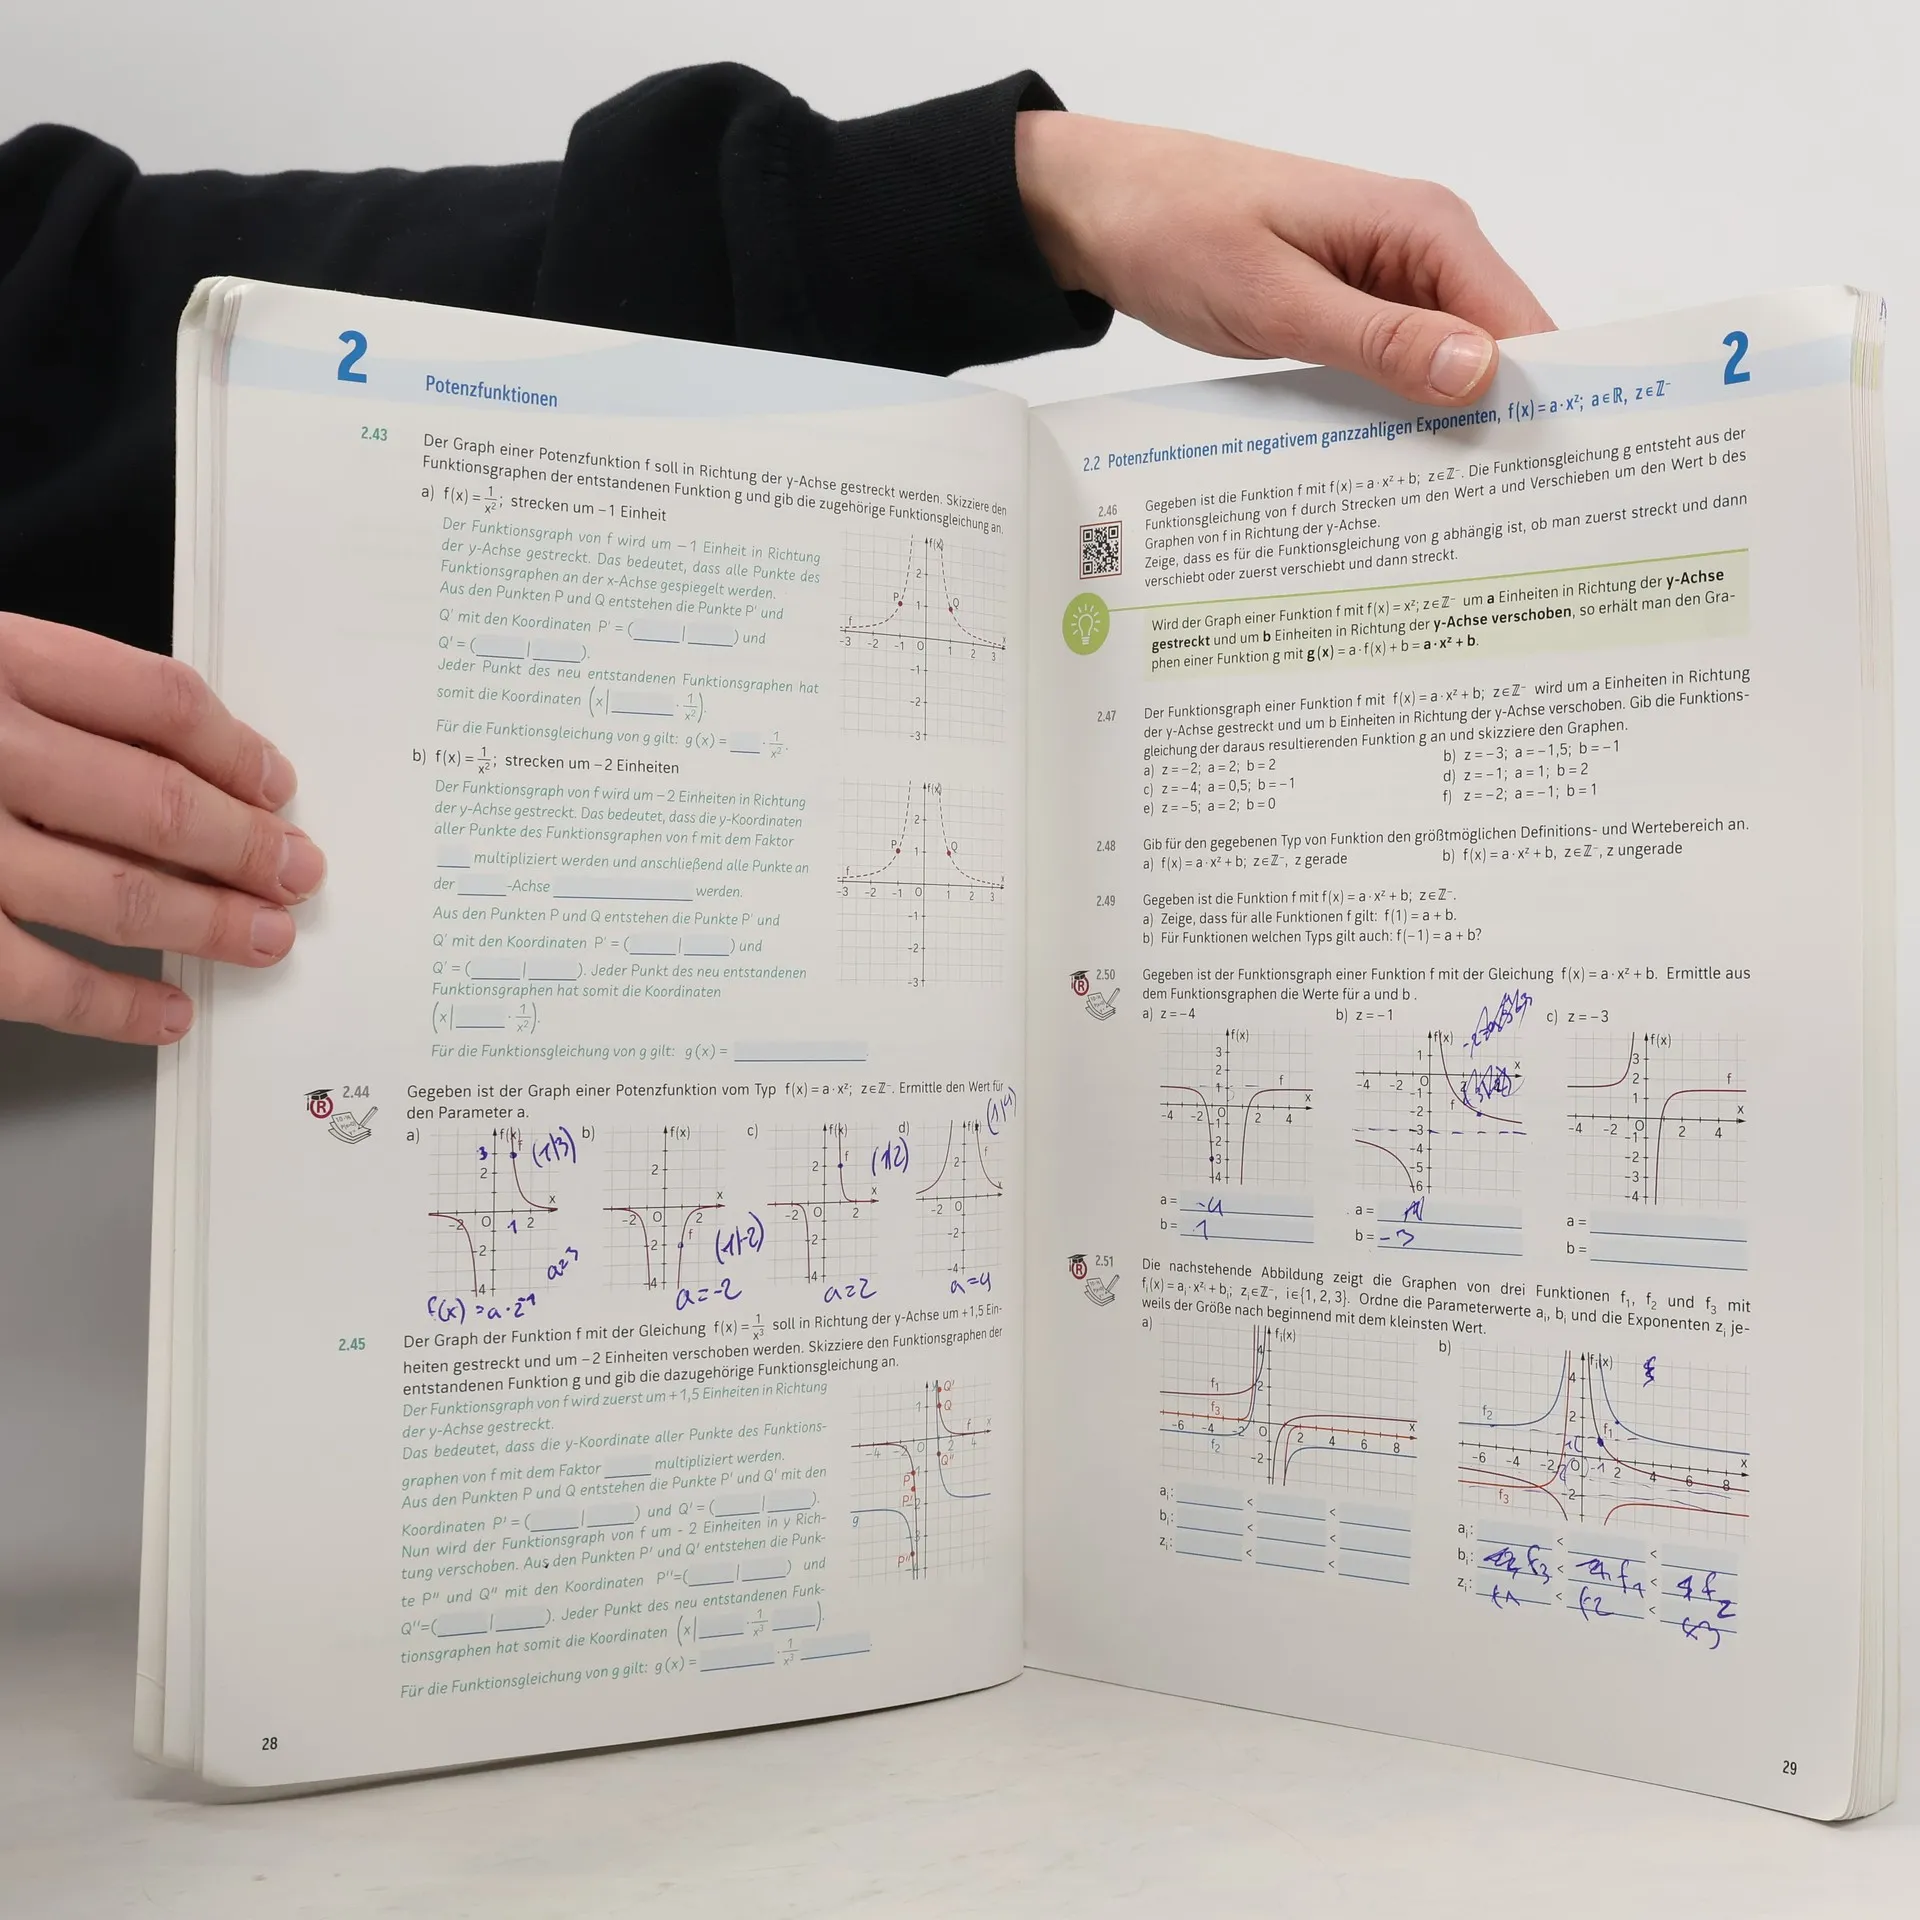 2
Potenzfunktionen
2.43
Der Graph einer Potenzfunktion f soll in Richtung der y-Achse gestreckt werden. Skizziere den
Funktionsgraphen der entstandenen Funktion g und gib die zugehörige Funktionsgleichung an.
a) f(x) = 1/x²; strecken um −1 Einheit
Der Funktionsgraph von f wird um −1 Einheit in Richtung
der y-Achse gestreckt. Das bedeutet, dass alle Punkte des
Funktionsgraphen an der x-Achse gespiegelt werden.
Aus den Punkten P und Q entstehen die Punkte P' und
Q' mit den Koordinaten P' = (____|____) und
Q' = (____|____).
Jeder Punkt des neu entstandenen Funktionsgraphen hat
somit die Koordinaten (x|____ · 1/x²).
Für die Funktionsgleichung von g gilt: g(x) = ___ · 1/x².
b) f(x) = 1/x²; strecken um −2 Einheiten
Der Funktionsgraph von f wird um −2 Einheiten in Richtung
der y-Achse gestreckt. Das bedeutet, dass die y-Koordinaten
aller Punkte des Funktionsgraphen von f mit dem Faktor
___ multipliziert werden und anschließend alle Punkte an
der ____-Achse ____ werden.
Aus den Punkten P und Q entstehen die Punkte P' und
Q' mit den Koordinaten P' = (____|____) und
Q' = (____|____). Jeder Punkt des neu entstandenen
Funktionsgraphen hat somit die Koordinaten
(x|____ · 1/x²).
Für die Funktionsgleichung von g gilt: g(x) = ____
2.44
Gegeben ist der Graph einer Potenzfunktion vom Typ f(x) = a · xᶻ; z∈ℤ⁻. Ermittle den Wert für
den Parameter a.
a) b) c) d)
(1|3) (1|-2) (1|2) (1|4)
a=3
f(x) = a · 2⁻¹
a=-2
a=2
a=4
2.45
Der Graph der Funktion f mit der Gleichung f(x) = 1/x³ soll in Richtung der y-Achse um +1,5 Ein-
heiten gestreckt und um −2 Einheiten verschoben werden. Skizziere den Funktionsgraphen der
entstandenen Funktion g und gib die dazugehörige Funktionsgleichung an.
Der Funktionsgraph von f wird zuerst um +1,5 Einheiten in Richtung
der y-Achse gestreckt.
Das bedeutet, dass die y-Koordinate aller Punkte des Funktions-
graphen von f mit dem Faktor ____ multipliziert werden.
Aus den Punkten P und Q entstehen die Punkte P' und Q' mit den
Koordinaten P' = (____|____) und Q' = (____|____).
Nun wird der Funktionsgraph von f um - 2 Einheiten in y Rich-
tung verschoben. Aus den Punkten P' und Q' entstehen die Punk-
te P'' und Q'' mit den Koordinaten P''=(____|____) und
Q''=(____|____). Jeder Punkt des neu entstandenen Funk-
tionsgraphen hat somit die Koordinaten (x|____ · 1/x³ ____).
Für die Funktionsgleichung von g gilt: g(x) = ____ · 1/x³ ____.
28
2
2.2 Potenzfunktionen mit negativem ganzzahligen Exponenten, f(x) = a · xᶻ; a∈ℝ, z∈ℤ⁻
2.46
Gegeben ist die Funktion f mit f(x) = a · xᶻ + b; z∈ℤ⁻. Die Funktionsgleichung g entsteht aus der
Funktionsgleichung von f durch Strecken um den Wert a und Verschieben um den Wert b des
Graphen von f in Richtung der y-Achse.
Zeige, dass es für die Funktionsgleichung von g abhängig ist, ob man zuerst streckt und dann
verschiebt oder zuerst verschiebt und dann streckt.
Wird der Graph einer Funktion f mit f(x) = xᶻ; z∈ℤ⁻ um a Einheiten in Richtung der y-Achse
gestreckt und um b Einheiten in Richtung der y-Achse verschoben, so erhält man den Gra-
phen einer Funktion g mit g(x) = a · f(x) + b = a · xᶻ + b.
2.47
Der Funktionsgraph einer Funktion f mit f(x) = a · xᶻ + b; z∈ℤ⁻ wird um a Einheiten in Richtung
der y-Achse gestreckt und um b Einheiten in Richtung der y-Achse verschoben. Gib die Funktions-
gleichung der daraus resultierenden Funktion g an und skizziere den Graphen.
a) z = −2; a = 2; b = 2
b) z = −3; a = −1,5; b = −1
c) z = −4; a = 0,5; b = −1
d) z = −1; a = 1; b = 2
e) z = −5; a = 2; b = 0
f) z = −2; a = −1; b = 1
2.48
Gib für den gegebenen Typ von Funktion den größtmöglichen Definitions- und Wertebereich an.
a) f(x) = a · xᶻ + b; z∈ℤ⁻, z gerade
b) f(x) = a · xᶻ + b, z∈ℤ⁻, z ungerade
2.49
Gegeben ist die Funktion f mit f(x) = a · xᶻ + b; z∈ℤ⁻.
a) Zeige, dass für alle Funktionen f gilt: f(1) = a + b.
b) Für Funktionen welchen Typs gilt auch: f(−1) = a + b?
2.50
Gegeben ist der Funktionsgraph einer Funktion f mit der Gleichung f(x) = a · xᶻ + b. Ermittle aus
dem Funktionsgraphen die Werte für a und b.
a) z = −4
b) z = −1
c) z = −3
a = -4
b = 1
a =
b = -3
a =
b =
2.51
Die nachstehende Abbildung zeigt die Graphen von drei Funktionen f₁, f₂ und f₃ mit
fᵢ(x) = aᵢ · xᶻ + bᵢ; zᵢ∈ℤ⁻, i∈{1, 2, 3}. Ordne die Parameterwerte aᵢ, bᵢ und die Exponenten zᵢ je-
weils der Größe nach beginnend mit dem kleinsten Wert.
a)
b)
aᵢ: ____ < ____ < ____
bᵢ: ____ < ____ < ____
zᵢ: ____ < ____ < ____
aᵢ: ____ < ____ < ____
bᵢ: f3 < f1 < f2
zᵢ: f1 < f2 < f3
29